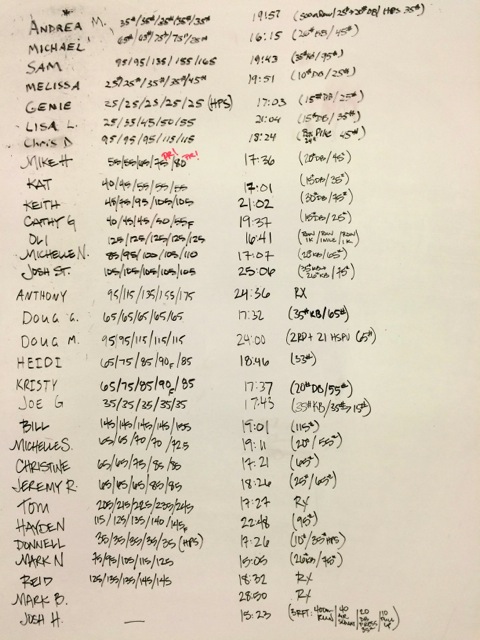 ANDREA M. 35#/35#/35#/35#/35# 19:57
MICHAEL 65#/65#/75#/75#/75# 16:15 (26#KB/45#)
SAM 95/95/135/155/165 19:43 (35#KB/95#)
MELISSA 25#/25#/35#/35#/45# 19:51 (10#DB/25#)
GENIE 25/25/25/25/25 (HPS) 17:03 (15#DB/25#)
LISA L. 25/35/45/50/55 21:04 (15#DB/35#)
Chris D 95/95/95/115/115 18:24 45#)
MIKE H 55/55/65/75/80 PR! PR! 17:36 (20#DB/45#)
KAT 40/45/55/55/55 17:01 (15#DB/35#)
KEITH 45/75/95/105/105 21:02 (30#DB/75#)
CATHY G 40/45/45/50/55F 19:37 (15#DB/25#)
OLI 125/125/125/125/125 16:41 (ROW 1K/RUN 1 MILE/ROW 1K)
MICHELLE N. 85/95/100/105/110 17:07 (26KB/65#)
JOSH ST. 105/105/105/105/105 25:06 (35#KB+ 26#KB/75#)
ANTHONY 95/115/135/155/175 24:36 RX
DOUG G. 65/65/65/65/65 17:32 (35#KB/65#)
DOUG M. 95/95/115/115/115 24:00 (2RD+ 21 HSPU 65#)
HEIDI 65/75/85/90F/85 18:46 (33#)
KRISTY 65/75/85/90F/85 17:37 (20#DB/55#)
JOE G 35/35/35/35/35 17:43 (35#KB/35#> 15#)
BILL 145/145/145/145/155 19:01 (115#)
MICHELLE S. 65/65/70/70/72.5 19:11 (20#/55#)
CHRISTINE 65/65/75/85/85 17:21 (65#)
JEREMY R. 65/65/65/85/85 18:26 (25#/65#)
TOM 205/215/225/235/245 17:27 RX
HAYDEN 115/125/135/140/145F 22:48 (95#)
DONNELL 35/35/35/35/35 (HPS) 17:26 (10#/35#HPS)
MARK N 75/95/105/115/125 15:05 (26KB/75#)
REID 125/135/135/145/145 18:32 RX
MARK B. 28:50 RX
JOSH H. — 15:23 (3RFT: 400m RUN/40 AIR SQUATS/20 DB PRESS 35#/10 PULL UP)